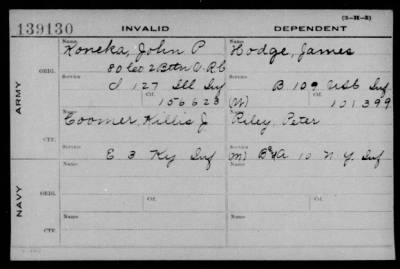 (3-H-3)
139130 INVALID DEPENDENT
Name Name
Koneka, John P Hodge, James
ORIG. 80 Co 2 Bttn A.R.C
Service Service
I 127 Ill Inf B 109 USC Inf
ARMY Ctf. Ctf.
156623 (W) 101399
Name Name
Coomer, Killis J Riley, Peter
CTF. Service Service
E 3 Ky Inf (M) B&A 10 N.Y. Inf
NAVY
Name Name
ORIG. Service Service
Ctf. Ctf.
Name Name
CTF. Service Service